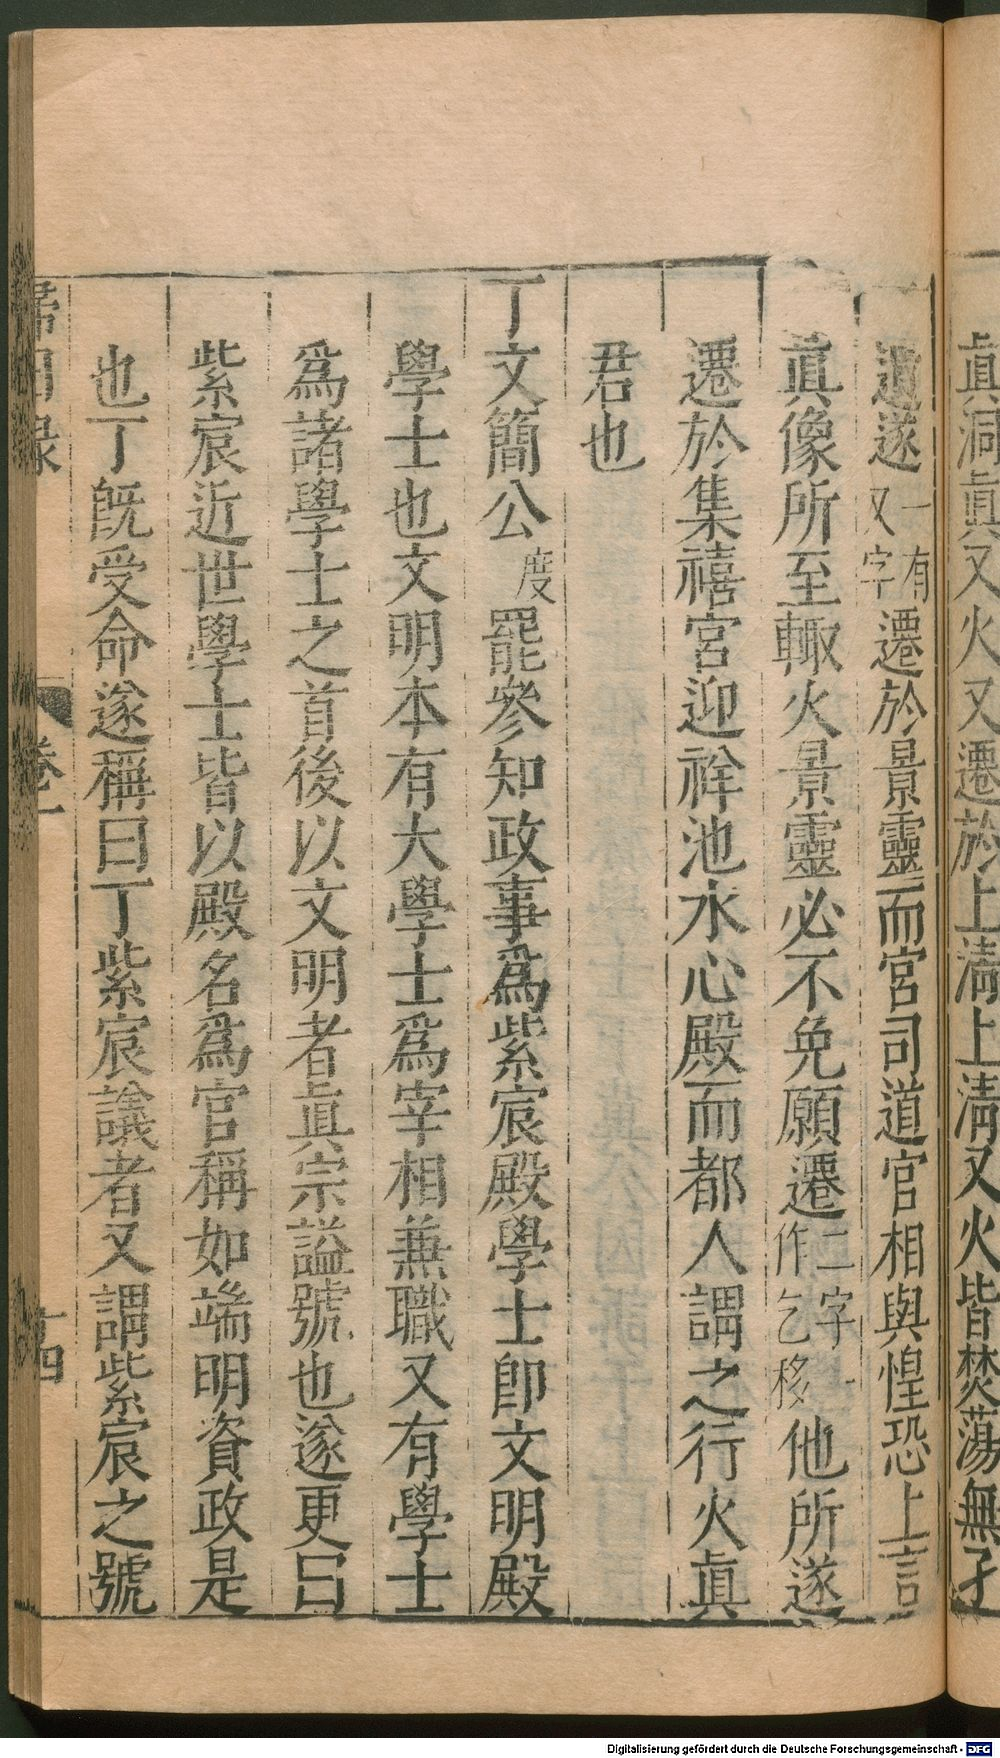 眞洞眞又火又遷於上淸上淸又火皆焚蕩無孑
遺遂一有又字遷於景靈而宮司道官相與惶恐上言
眞像所至輙火景靈必不免願遷二字一作乞移他所遂
遷於集禧宮迎祥池水心殿而都人謂之行火眞
君也
丁文簡公度罷參知政事爲紫宸殿學士卽文明殿
學士也文明本有大學士爲宰相兼職又有學士
爲諸學士之首後以文明者眞宗謚號也遂更曰
紫宸近世學士皆以殿名爲官稱如端明資政是
也丁旣受命遂稱曰丁紫宸議者又謂紫宸之號
歸田錄
卷一
十四
Digitalisierung gefördert durch die Deutsche Forschungsgemeinschaft - DFG